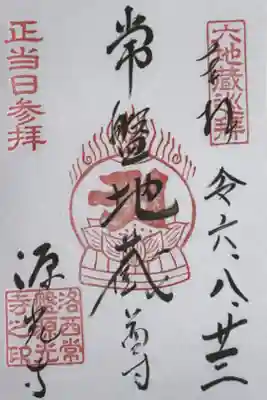 六地蔵巡拝
奉拝
令六、八、廿二
常盤地蔵尊
源光寺
正当日参拝
洛西常盤源光寺之印